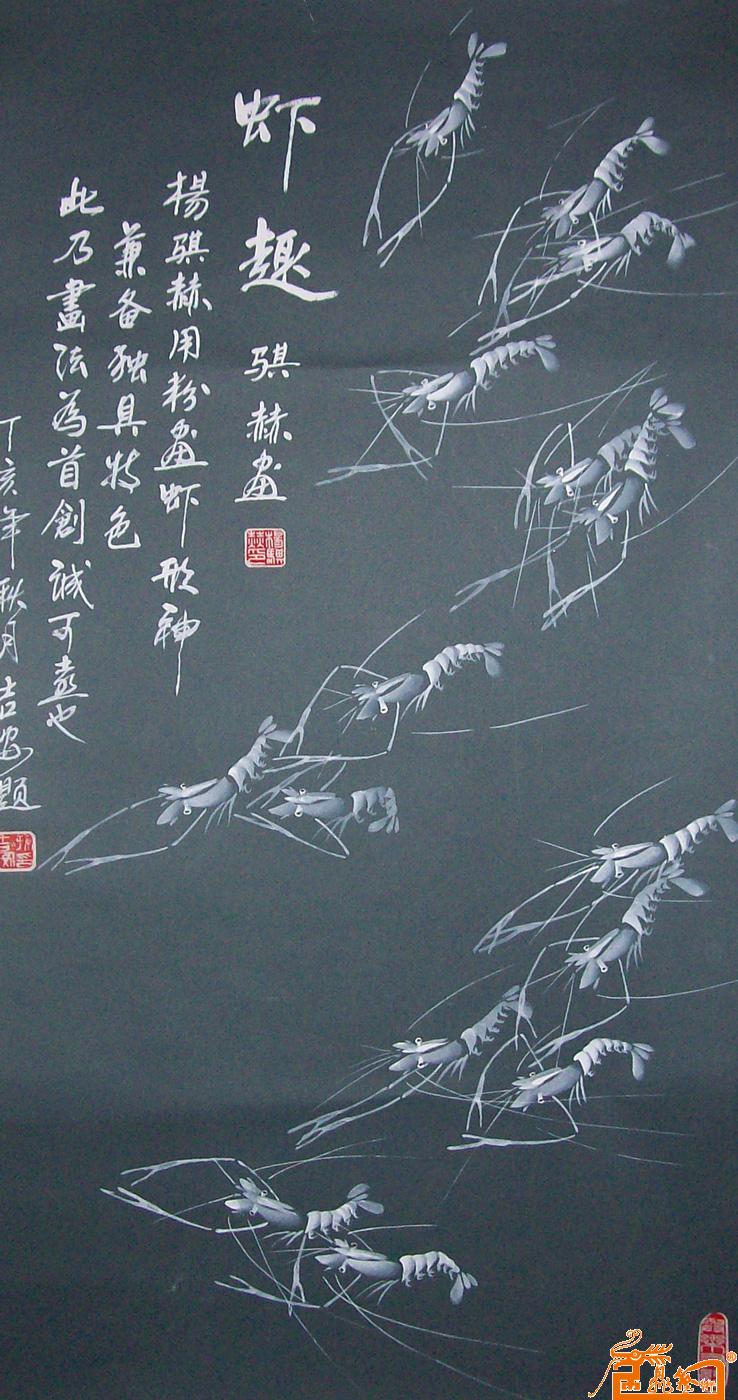 虾趣
骐赫画
楊骐赫用粉画虾形神
兼备独具特色
此乃畫法為首創诚可嘉也
丁亥年秋月吉安题